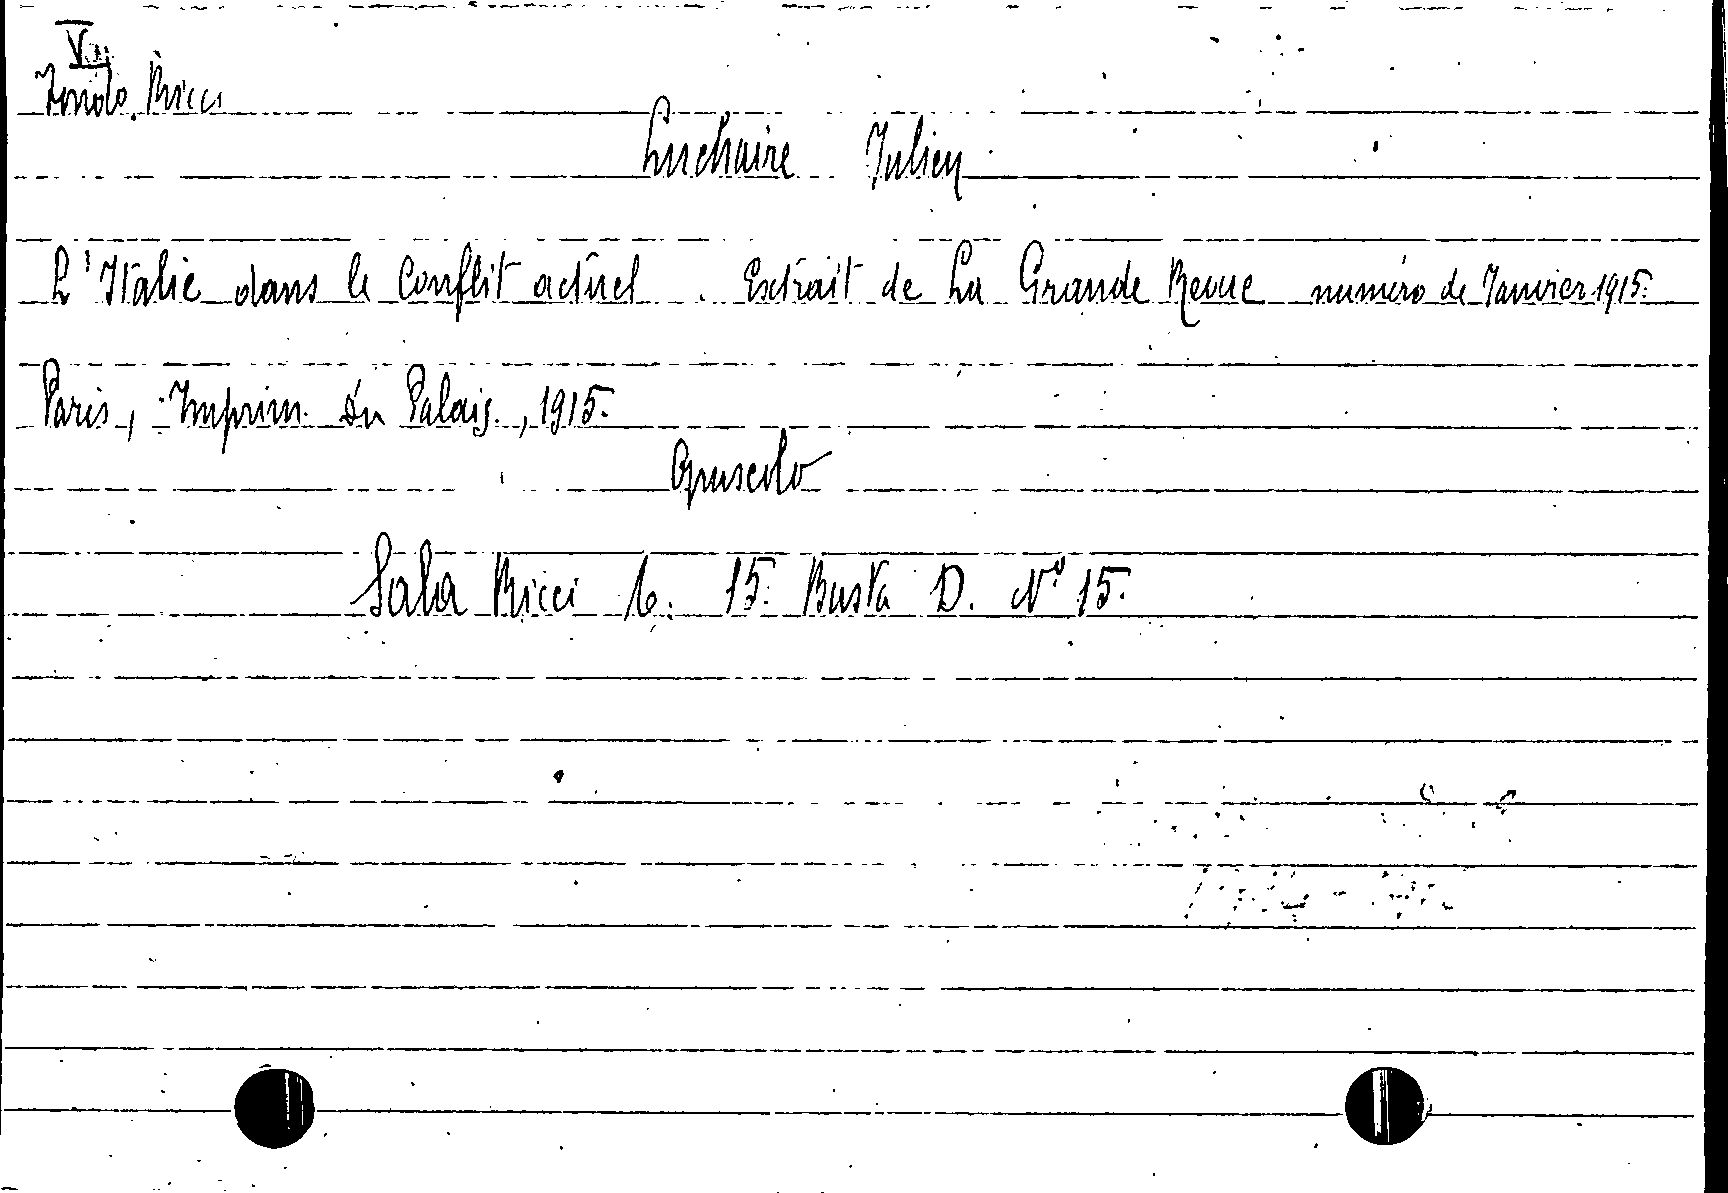 V
Fondo Ricci
Luchaire Julien
L'Italie dans le Conflit actuel. Extrait de La Grande Revue numéro de Janvier 1915.
Paris, Imprim. du Palais., 1915.
Opuscolo
Sala Ricci 6. 15. Busta D. N° 15.